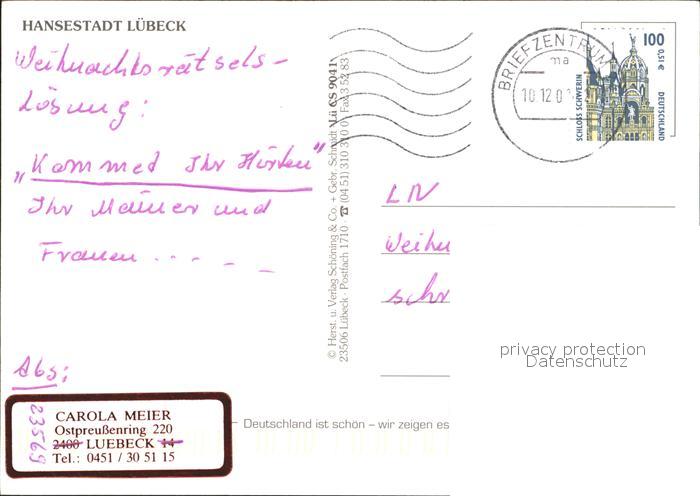 HANSESTADT LÜBECK
Weihnachtsrätsels-
Lösung:
„Kommet Ihr Hirten"
Ihr Männer und
Frauen .. . - - -
Abs:
23569
CAROLA MEIER
Ostpreußenring 220
2400 LUEBECK 14
Tel.: 0451 / 30 51 15
© Herst. u. Verlag Schöning & Co. + Gebr. Schmidt Lü CS 9041
23506 Lübeck · Postfach 1710 · ☎ (04 51) 310 310 0 · Fax 3 52 83
BRIEFZENTRUM
ma
10.12.0
100
0,51 €
SCHLOSS SCHWERIN
DEUTSCHLAND
LN
Weihn
schr
privacy protection
Datenschutz
Deutschland ist schön – wir zeigen es